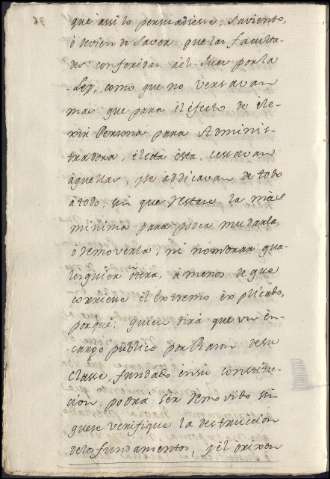 que asi lo persuadiese, saviento,
ó devien de Savar que las faculta-
des conferidas al Juez por la
Ley, como que no versavan
mas que para el efecto de ele-
xir Persona para Administ-
tradora, electa esta, cesavan
aquellas, y se abdicavan de todo
a todo; sin que restase la mas
minima para poder mudarla,
ó removerla, ni nombrar qua-
lesquiera otra, a menos de que
corriese el extremo explicado,
porque; quien dirá que un en-
cargo público por Razon de su
Clase, fundado en su constitu-
cion, podrá ser removido sin
que se verifique la destruccion
de los fundamentos, y el origen